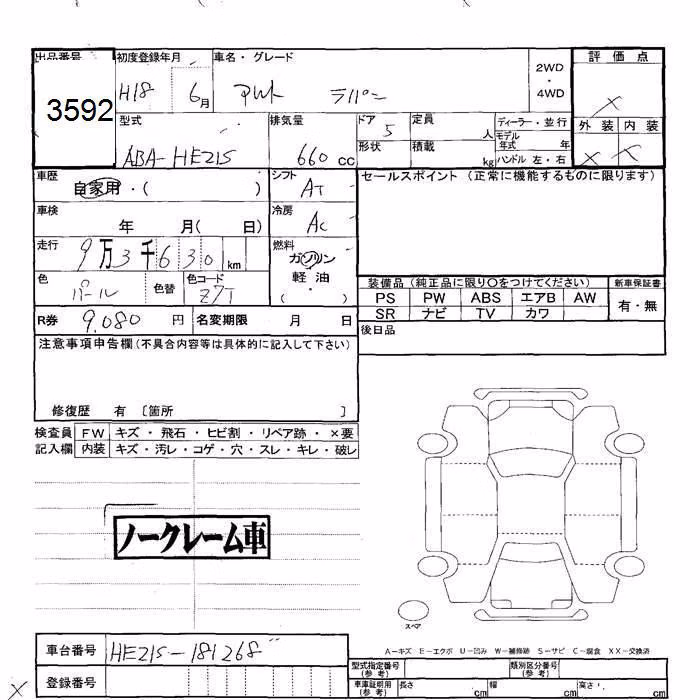 出品番号 初度登録年月 車名・グレード 2WD ・ 4WD 評価点
3592 H18 6月 アルト ラパン X
型式 排気量 ドア 定員 人 ディーラー・並行 外装 内装
ABA-HE21S 660 cc 5 形状 積載 kg モデル年式 年 ハンドル 左・右 X X
車歴 自家用・( ) シフト AT セールスポイント (正常に機能するものに限ります)
車検 年 月( 日) 冷房 AC
走行 9万3千630 km 燃料 ガソリン
色 パール 色替 色コード Z7T 軽油 ・ ( ) 装備品 (純正品に限り○をつけてください) 新車保証書
PS PW ABS エアB AW 有・無
SR ナビ TV カワ
R券 9.080 円 名変期限 月 日 後日品
注意事項申告欄(不具合内容等は具体的に記入して下さい)
修復歴 有 [箇所 ]
検査員 FW キズ・飛石・ヒビ割・リペア跡・×要
記入欄 内装 キズ・汚レ・コゲ・穴・スレ・キレ・破レ
ノークレーム車
スペア
車台番号 HE21S-181268
A-キズ E-エクボ U-凹み W-補修跡 S-サビ C-腐食 XX-交換済
登録番号 型式指定番号 (参考) 類別区分番号 (参考)
車庫証明用 (参考) 長さ cm 幅 cm 高さ cm
X